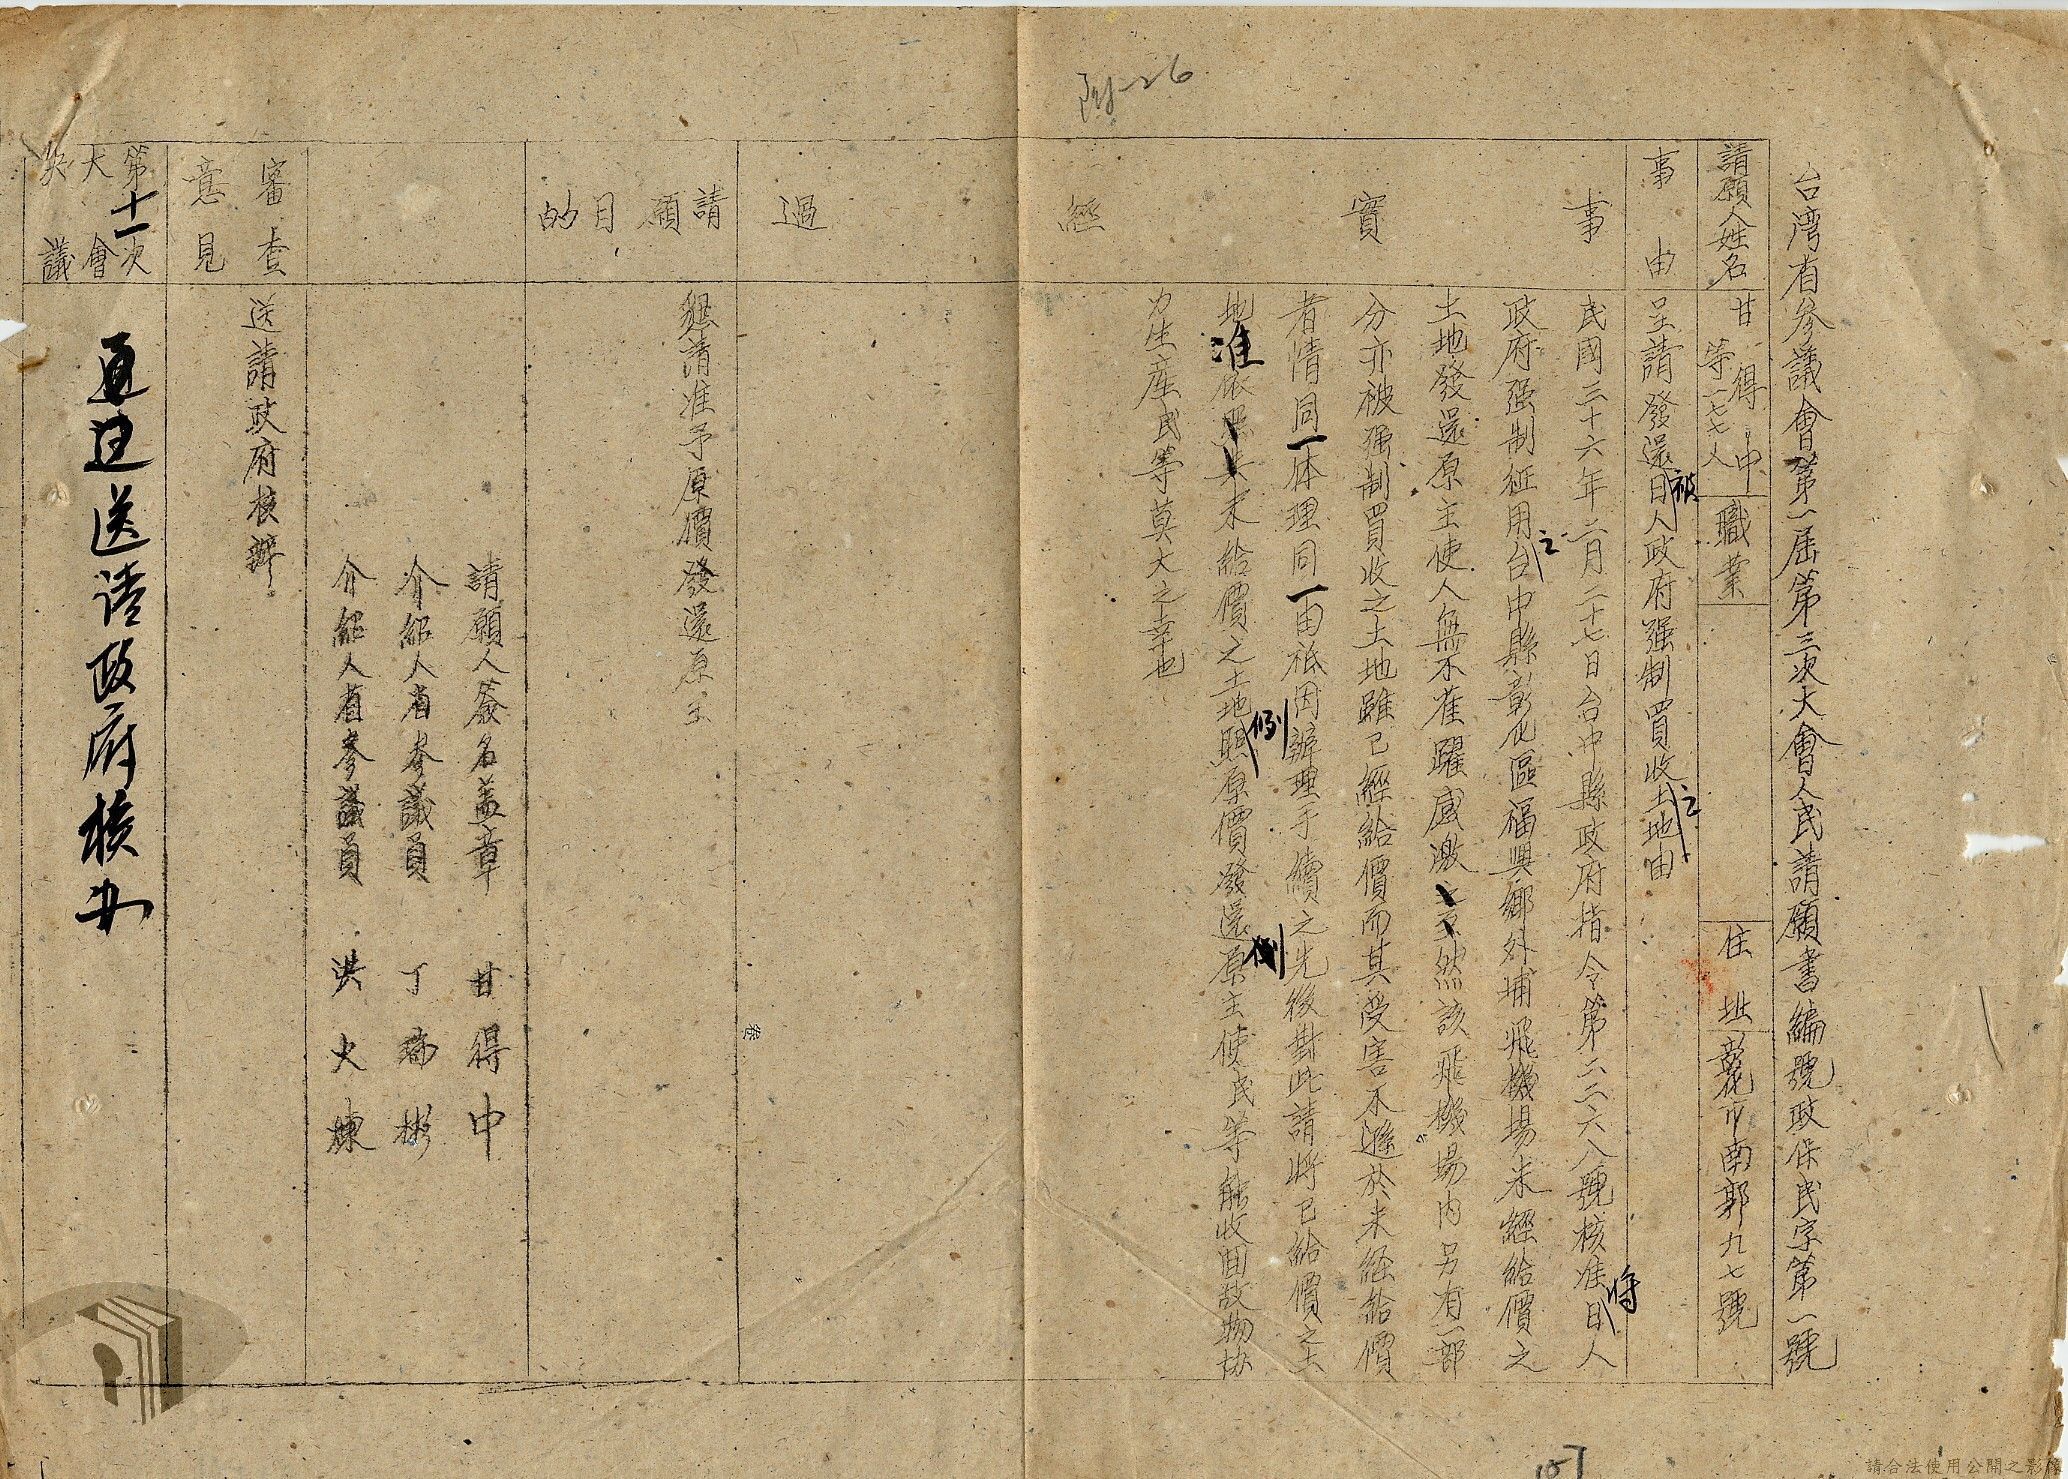 附-26
台湾省參議會第一屆第三次大會人民請願書編號政保民字第一號
請願人姓名
甘得中
等一七七人
職業
住址
彰化市南郭九七號
事由
呈請發還被日人政府强制買收之土地由
事實經過
民國三十六年二月二十七日台中縣政府指令第二三六八號核准將日人
政府强制征用之台中縣彰化區福興鄉外埔飛機場未經給價之
土地發還原主使人無不雀躍感激 然該飛機場内另有一部
分亦被强制買收之土地雖已經給價而其受害不遜於未經給價
者情同一体理同一由祇因辦理手續之先後對此請將已給價之土
地准依照其未給價之土地例照原價發還原主使民等能收回故物協
力生產民等莫大之幸也
請願目的
懇請准予原價發還原主
請願人簽名蓋章 甘得中
介紹人省參議員 丁瑞彬
介紹人省參議員 洪火煉
審查意見
送請政府核辦。
第十一次大會決議
通过送請政府核办
157
請合法使用公開之影像